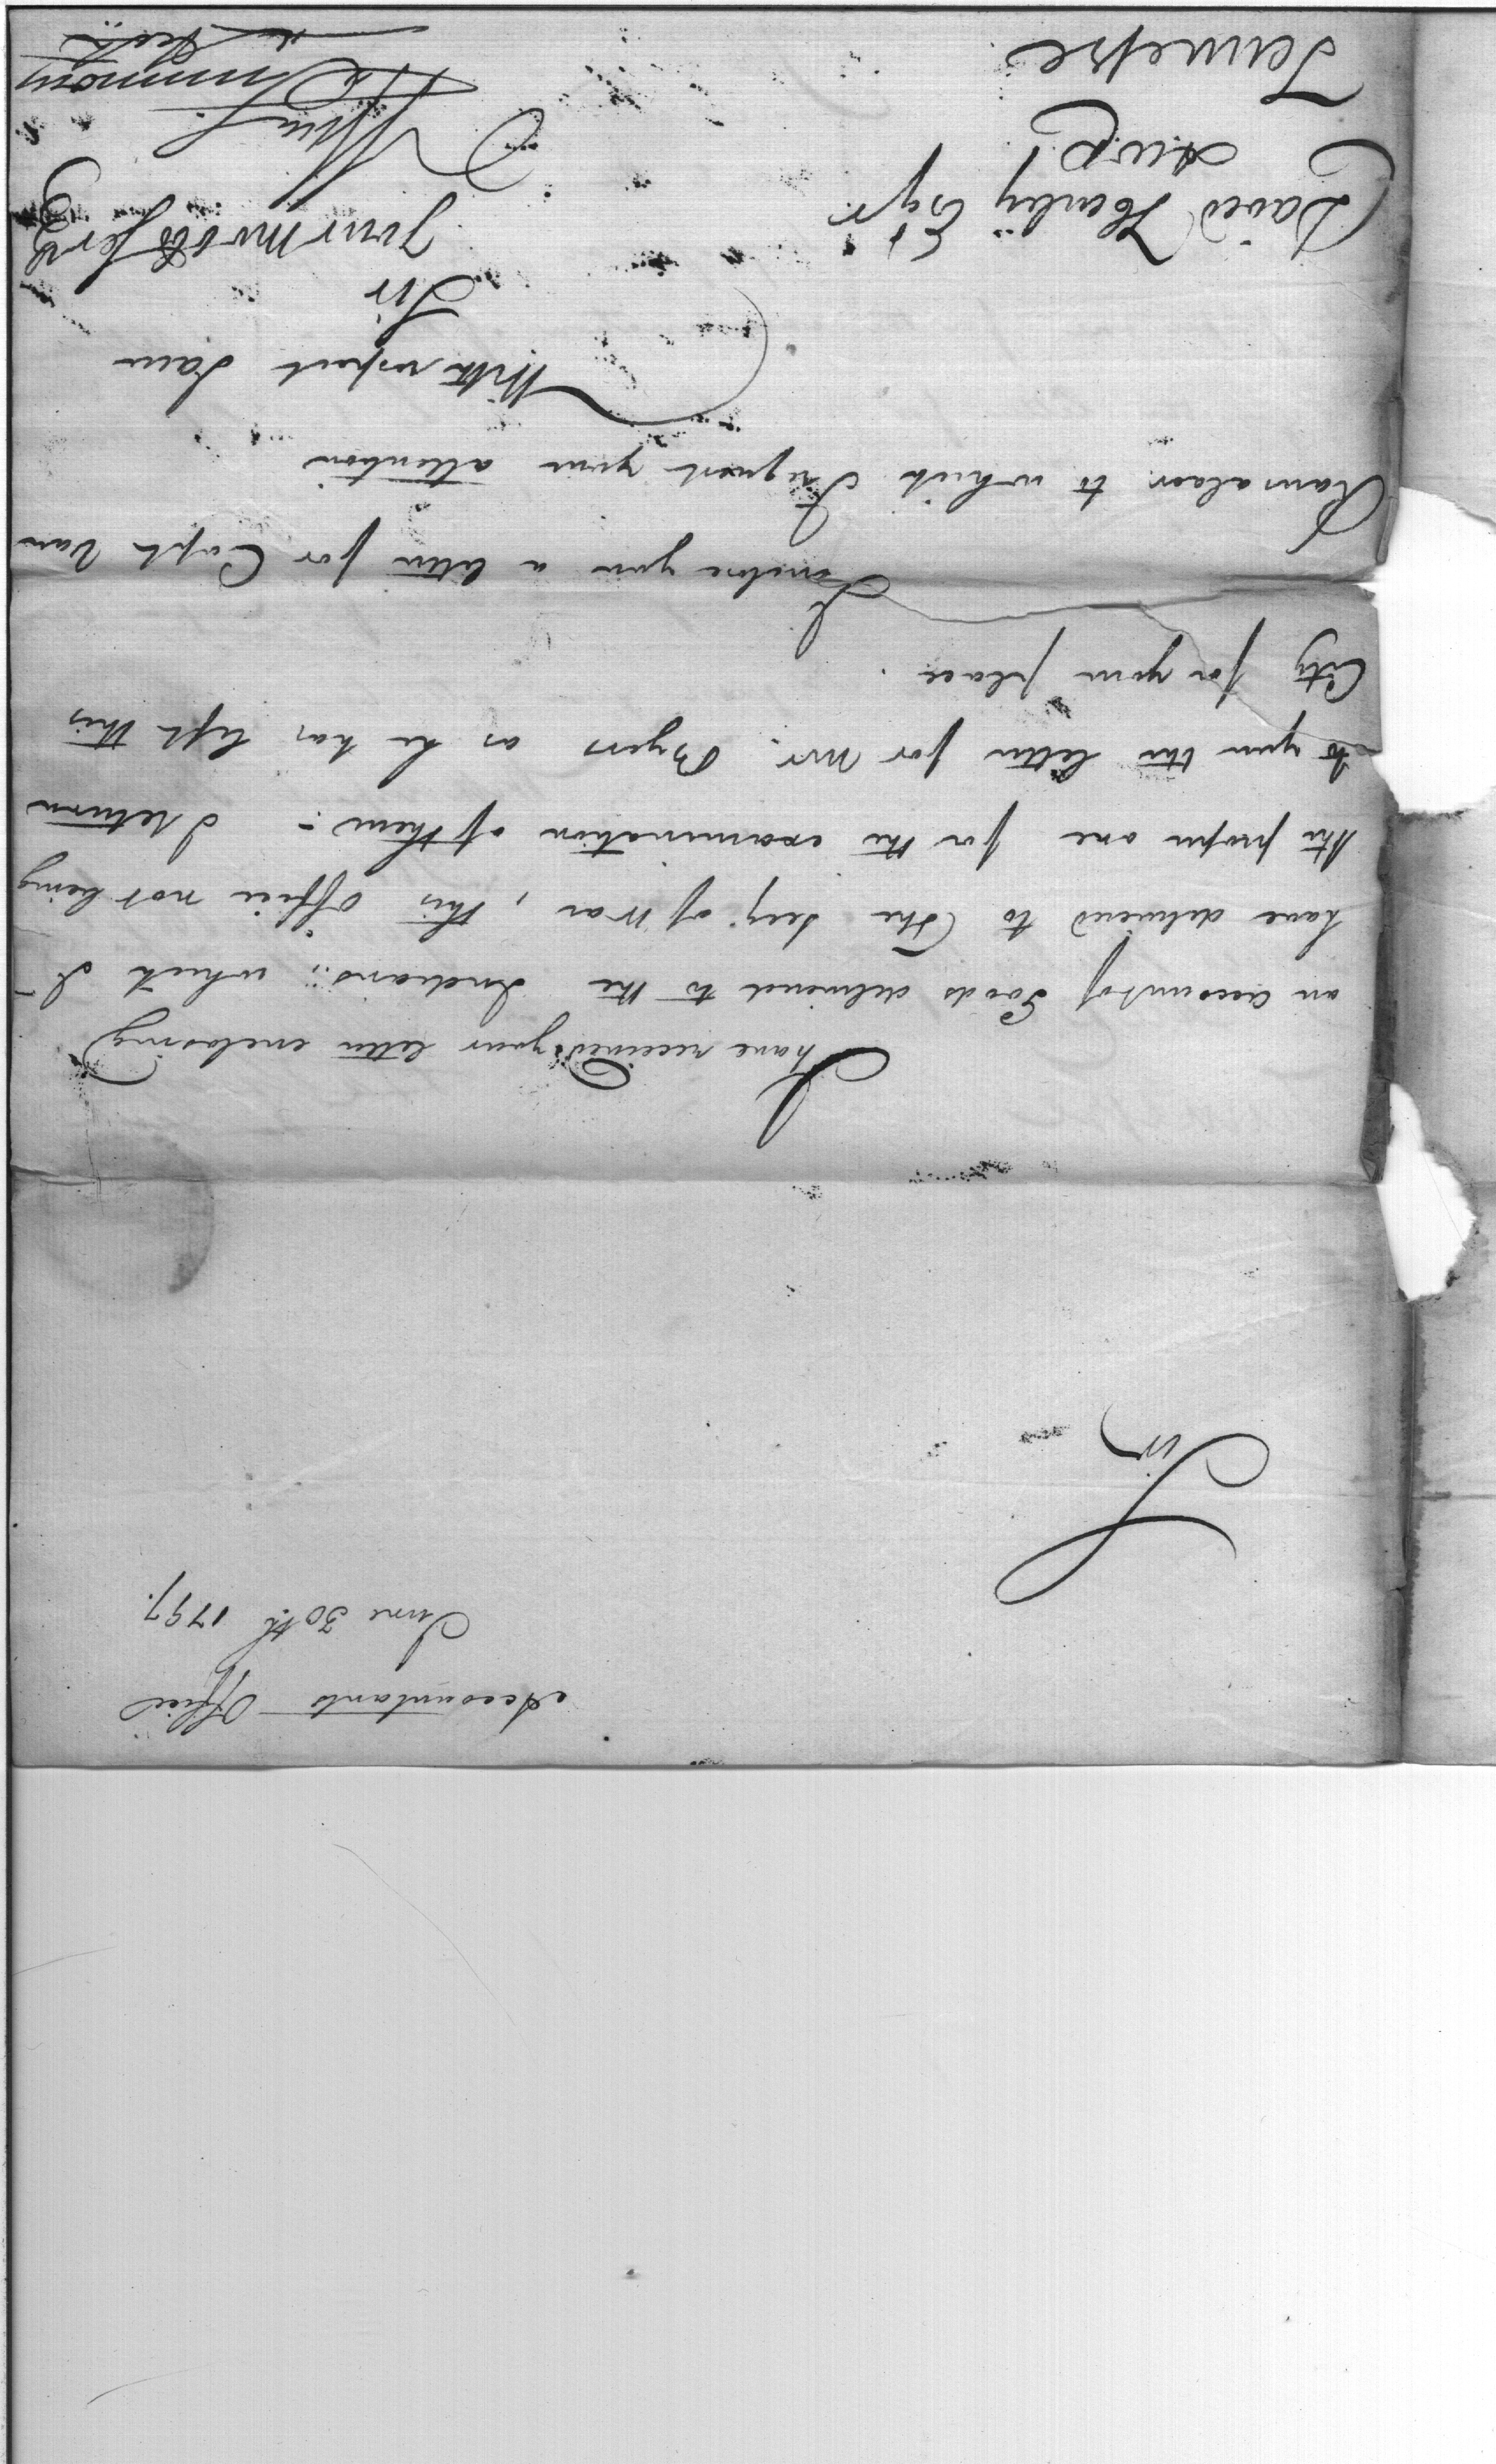 Accountants Office
June 30th 1797.
Sir
I have received your letter enclosing
an account of Goods delivered to the Indians, which I
have delivered to the Secy of War, this office not being
the proper one for the examination of them - I return
to you the letter for Mr. Byers as he has left this
City for your place.
I enclose you a letter for Capt. Van
Ranslaer to which I request your attention
With respect I am
Sir
Your mo Ob Serv
David Henley Esqr.
Agent
Tennessee